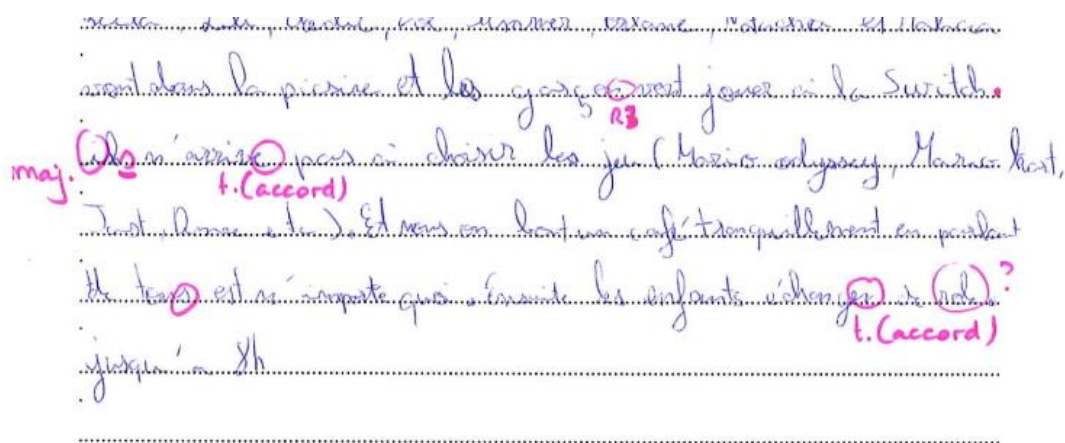 vont dans la picsine et les garçon vont jouer à la Switch.
R3
maj. ils n'arrive pas à choisir les jeu (Mario odyssey, Mario Kart,
t.(accord)
Just Danse etc). Et nous on boit un café tranquillement en parlant
de tous est n'importe quoi. Ensuite les enfants échanger de role. ?
t.(accord)
jusqu'à 8h